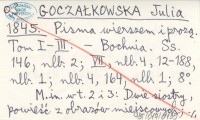 GOCZAŁKOWSKA Julia
1845. Pisma wierszem i prozą.
Tom I-III. — Bochnia. Ss.
146, nlb. 2; VII, nlb. 4, 12-188,
nlb. 1; nlb. 4, 164, nlb. 1; 8°.
M.in. w t. 2 i 3: Dwie siostry,
powieść z obrazów miejscowych